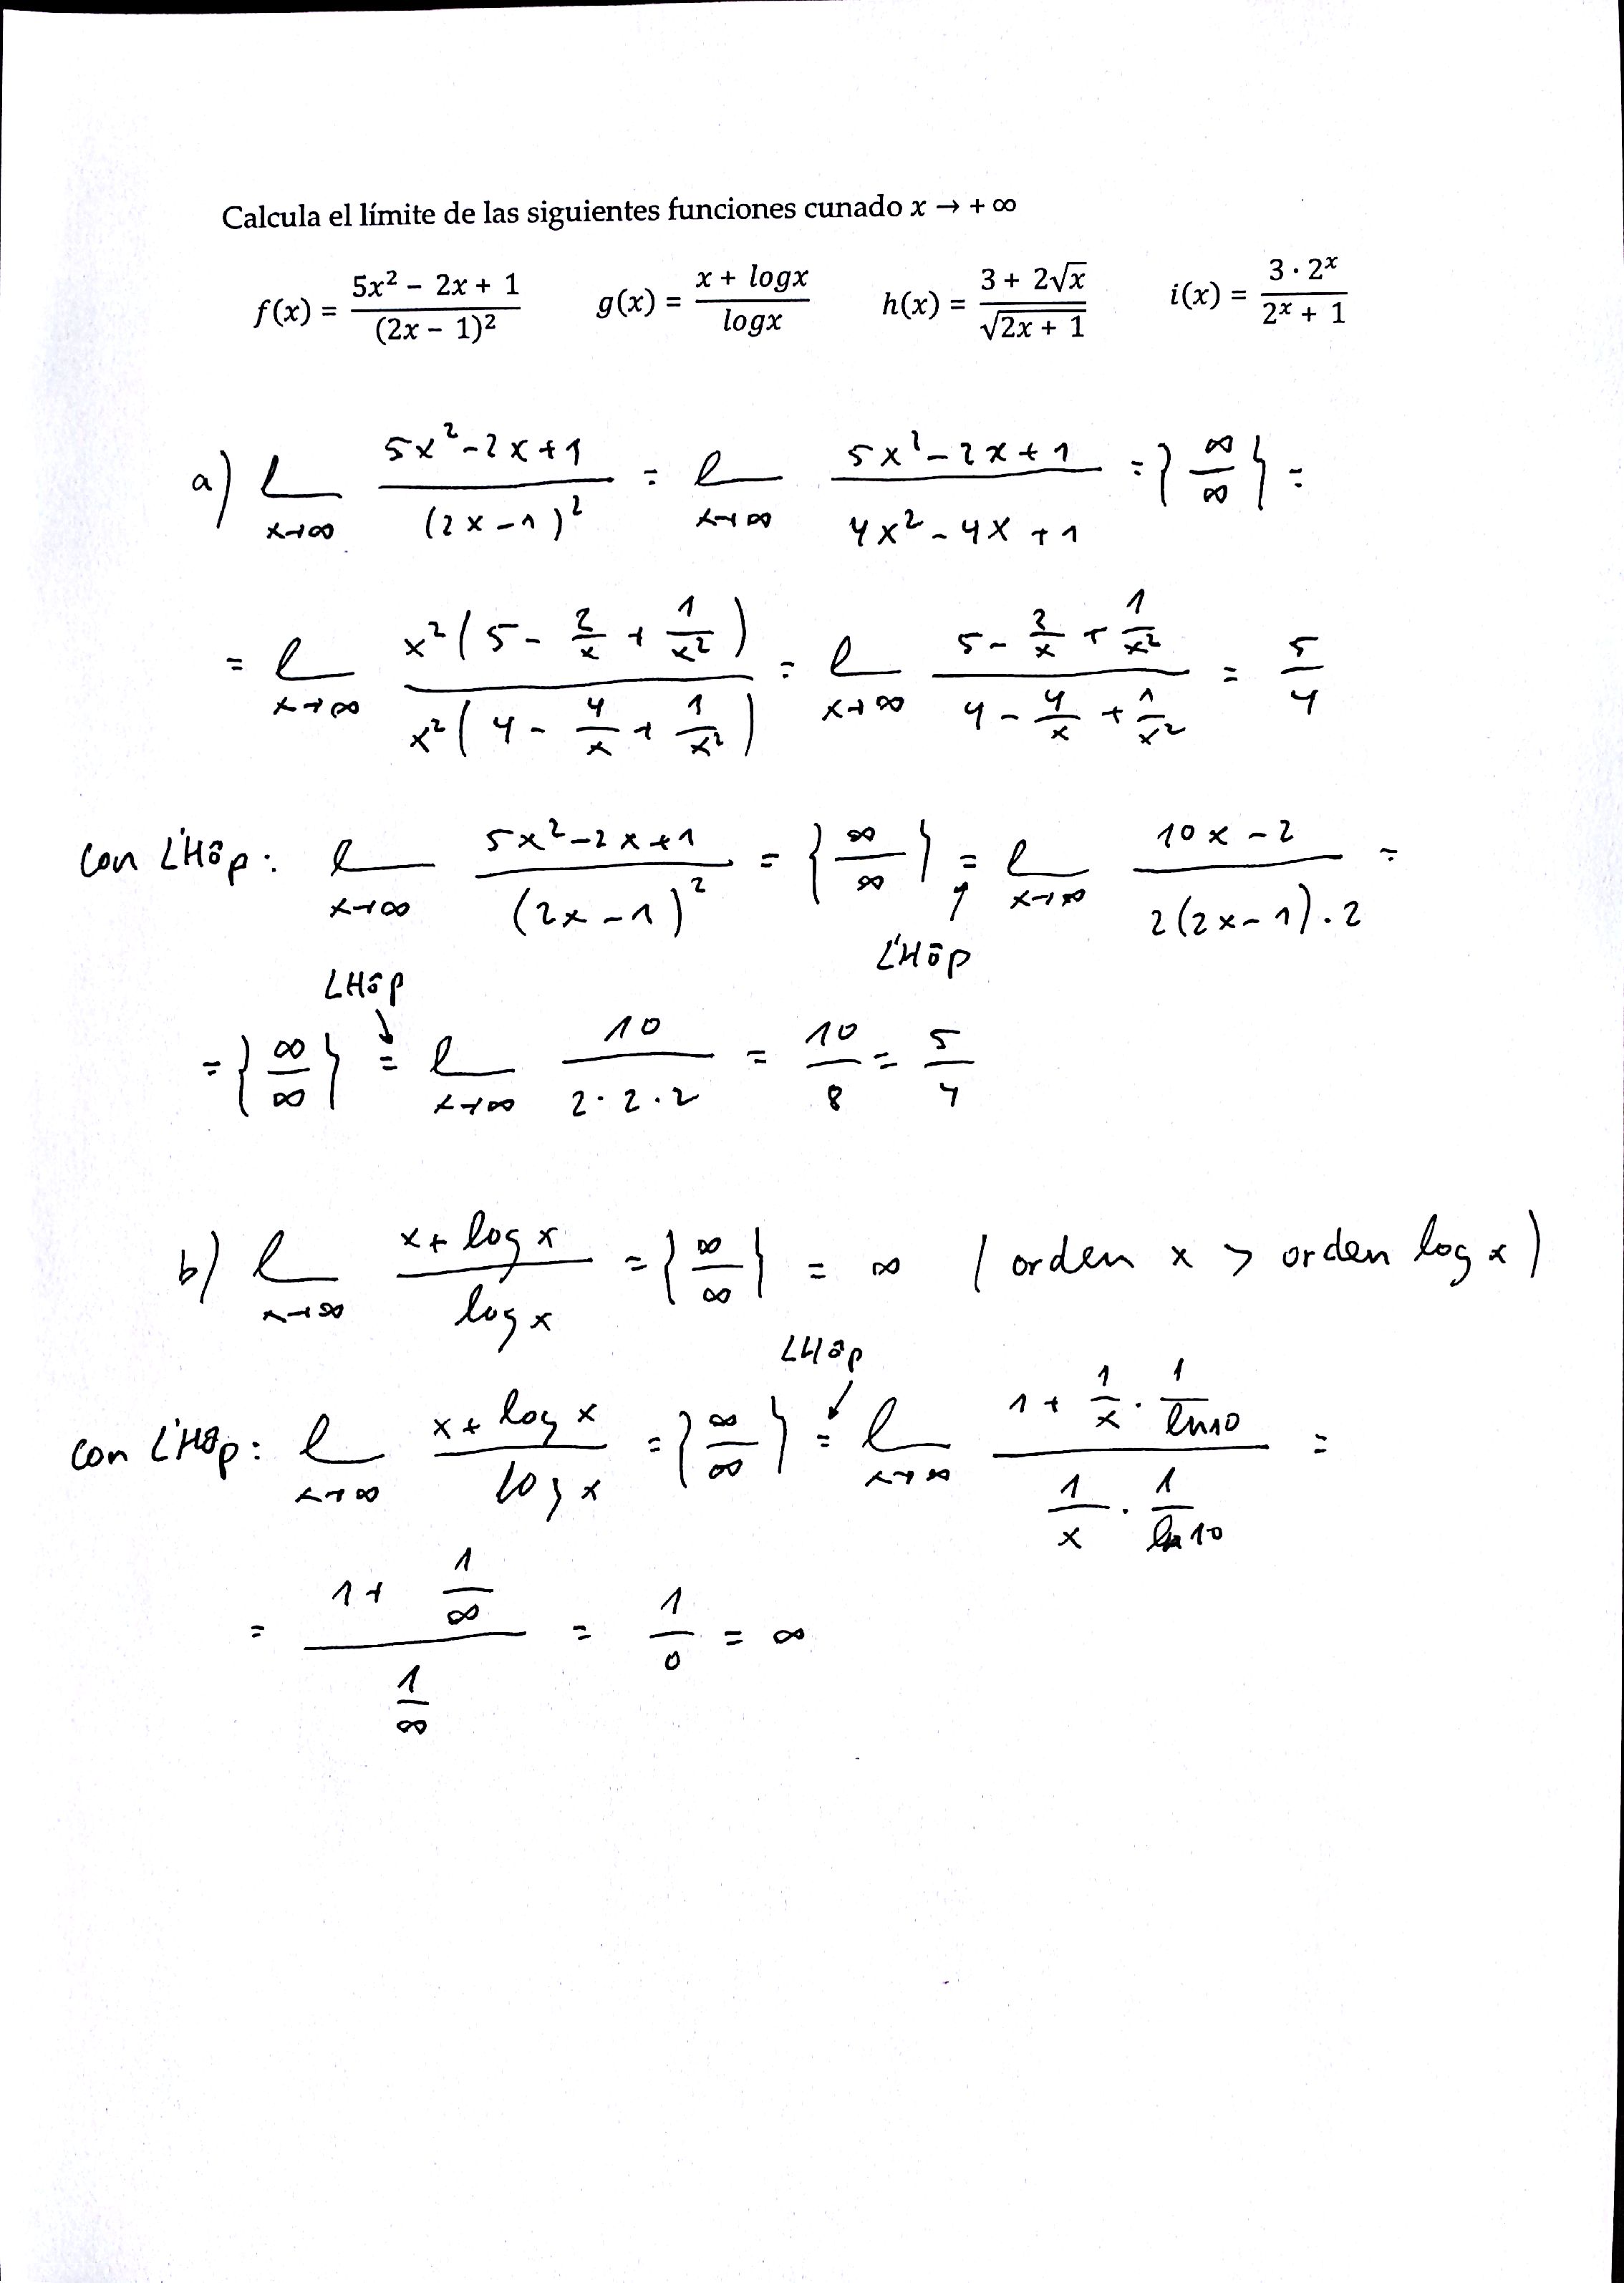 Calcula el límite de las siguientes funciones cunado x → + ∞
f(x) = (5x² − 2x + 1)/(2x − 1)²   g(x) = (x + logx)/logx   h(x) = (3 + 2√x)/√(2x + 1)   i(x) = (3 · 2ˣ)/(2ˣ + 1)
a) l x→∞ (5x²−2x+1)/(2x−1)² = l x→∞ (5x²−2x+1)/(4x²−4x+1) = {∞/∞} =
= l x→∞ x²(5 − 2/x + 1/x²)/x²(4 − 4/x + 1/x²) = l x→∞ (5 − 2/x + 1/x²)/(4 − 4/x + 1/x²) = 5/4
con L'Hôp: l x→∞ (5x²−2x+1)/(2x−1)² = {∞/∞} = l x→∞ (10x−2)/(2(2x−1)·2) =
L'Hôp
L'Hôp
= {∞/∞} = l x→∞ 10/(2·2·2) = 10/8 = 5/4
b) l x→∞ (x+log x)/log x = {∞/∞} = ∞ (orden x > orden log x)
L'Hôp
con L'Hôp: l x→∞ (x+log x)/log x = {∞/∞} = l x→∞ (1 + 1/x · 1/ln10)/(1/x · 1/ln 10) =
= (1 + 1/∞)/(1/∞) = 1/0 = ∞